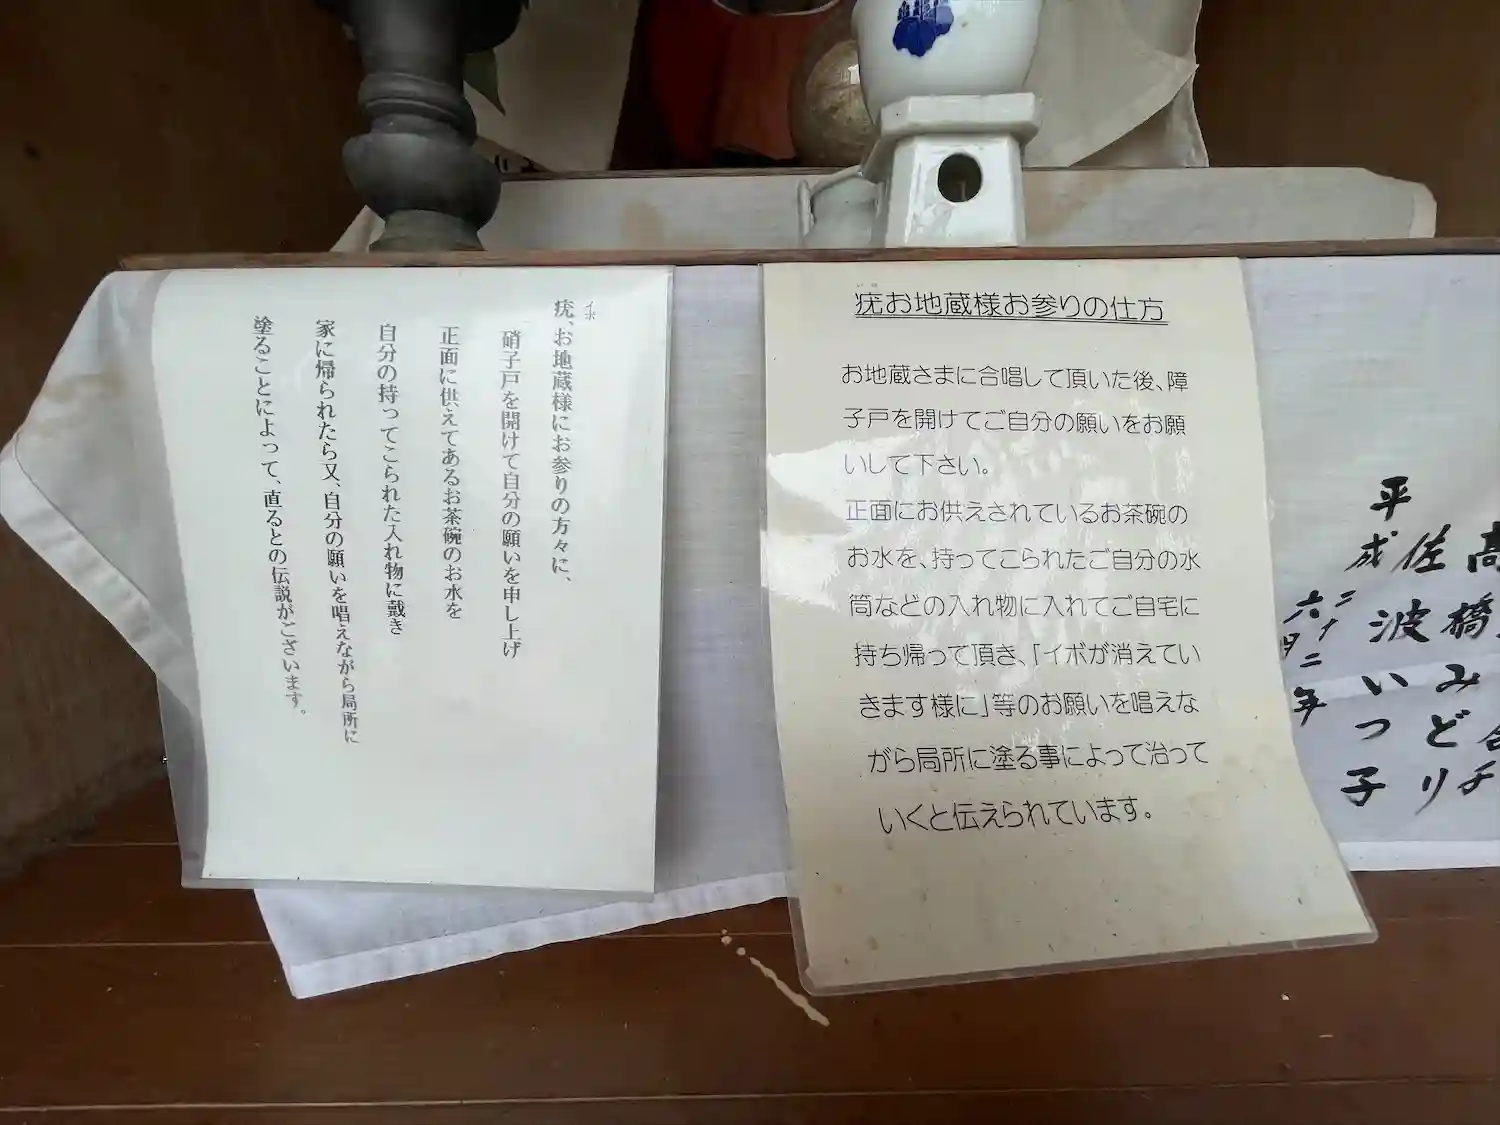 イボ
疣、お地蔵様にお参りの方々に、
硝子戸を開けて自分の願いを申し上げ
正面に供えてあるお茶碗のお水を
自分の持ってこられた入れ物に戴き
家に帰られたら又、自分の願いを唱えながら局所に
塗ることによって、直るとの伝説がございます。
疣お地蔵様お参りの仕方
お地蔵さまに合唱して頂いた後、障
子戸を開けてご自分の願いをお願
いして下さい。
正面にお供えされているお茶碗の
お水を、持ってこられたご自分の水
筒などの入れ物に入れてご自宅に
持ち帰って頂き、「イボが消えてい
きます様に」等のお願いを唱えな
がら局所に塗る事によって治って
いくと伝えられています。
高橋みどり
佐波いつ子
平成二十二年
六月